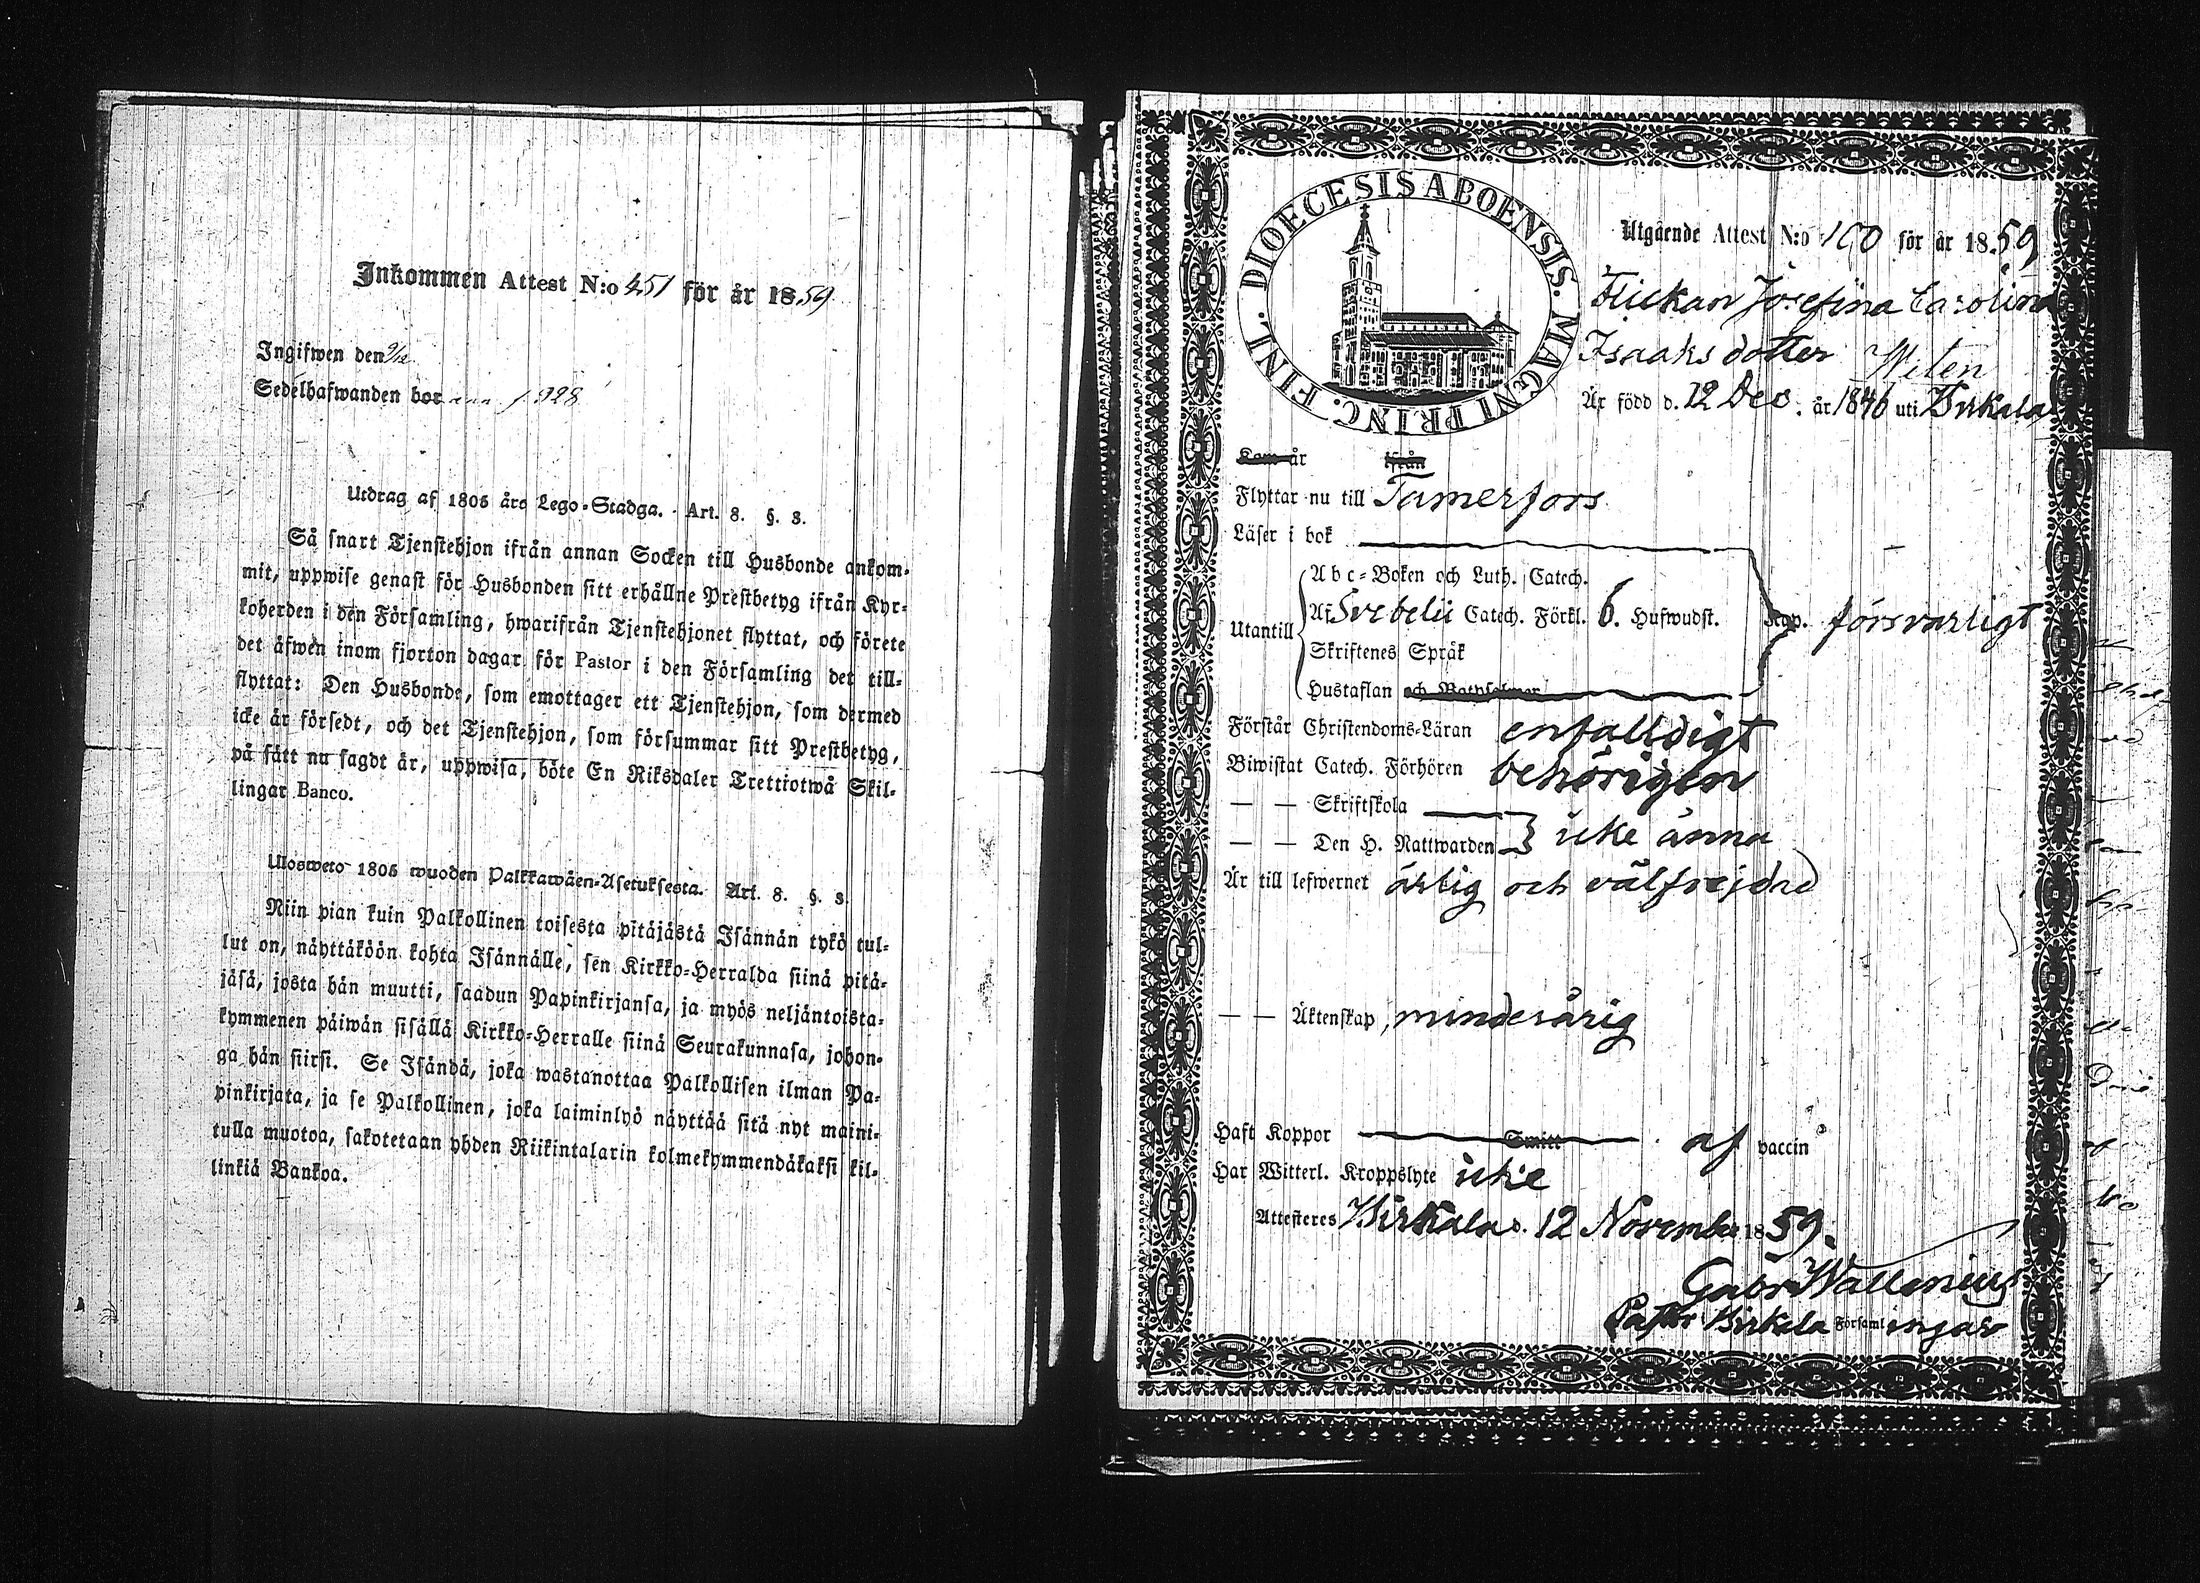 Inkommen Attest N:o 451 för år 1859
Ingifwen den 9/12
Sedelhafwanden bor
Utdrag af 1805 års Lego-Stadga. Art. 8. §. 3.
Så snart Tjenstehjon ifrån annan Socken till Husbonde ankom-
mit, uppwise genast för Husbonden sitt erhållne Prestbetyg ifrån Kyr-
koherden i den Församling, hwarifrån Tjenstehjonet flyttat, och förete
det äfwen inom fjorton dagar för Pastor i den Församling det till-
flyttat: Den Husbonde, som emottager ett Tjenstehjon, som dermed
icke är försedt, och det Tjenstehjon, som försummar sitt Prestbetyg,
på sätt nu sagdt är, uppwisa, böte En Riksdaler Trettiotwå Skil-
lingar Banco.
Ulosweto 1805 wuoden Palkkawäen-Asetuksesta. Art. 8. §. 3.
Niin pian kuin Palkollinen toisesta pitäjästä Isännän tykö tul-
lut on, näyttäköön kohta Isännälle, sen Kirkko-Herralda siinä pitä-
jäsä, josta hän muutti, saadun Papinkirjansa, ja myös neljäntoista-
kymmenen päiwän sisällä Kirkko-Herralle siinä Seurakunnasa, johon-
ga hän siirsi. Se Isändä, joka wastanottaa Palkollisen ilman Pa-
pinkirjata, ja se Palkollinen, joka laiminlyö näyttää sitä nyt maini-
tulla muotoa, sakotetaan yhden Riikintalarin kolmekymmendäkaksi kil-
linkiä Bankoa.
DIOECESIS ABOENSIS. MAGNI PRINC. FINL.
Utgående Attest N:o 100 för år 1859
Flickan Josefina Carolina
Isaaks dotter Wilen
Är född d. 12 Dec. år 1846 uti Birkala
Kom år ifrån
Flyttar nu till Tamerfors
Läser i bok
Abc-Boken och Luth. Catech.
Utantill Af Svebelii Catech. Förkl. 6. Hufwudst. Kap. försvarligt
Skriftenes Språk
Hustaflan och Botpsalmer
Förstår Christendoms-Läran enfalldigt
Biwistat Catech. Förhören behörigen
— — Skriftskola
— — Den H. Nattwarden icke ännu
Är till lefwernet ärlig och välfrejdad
— — Äktenskap, minderårig
Haft Koppor Smitt af vaccin
Har Witterl. Kroppslyte icke
Attesteras Birkala d. 12 November 1859.
Gabr Wallenius
Pastor Birkala Församlingar